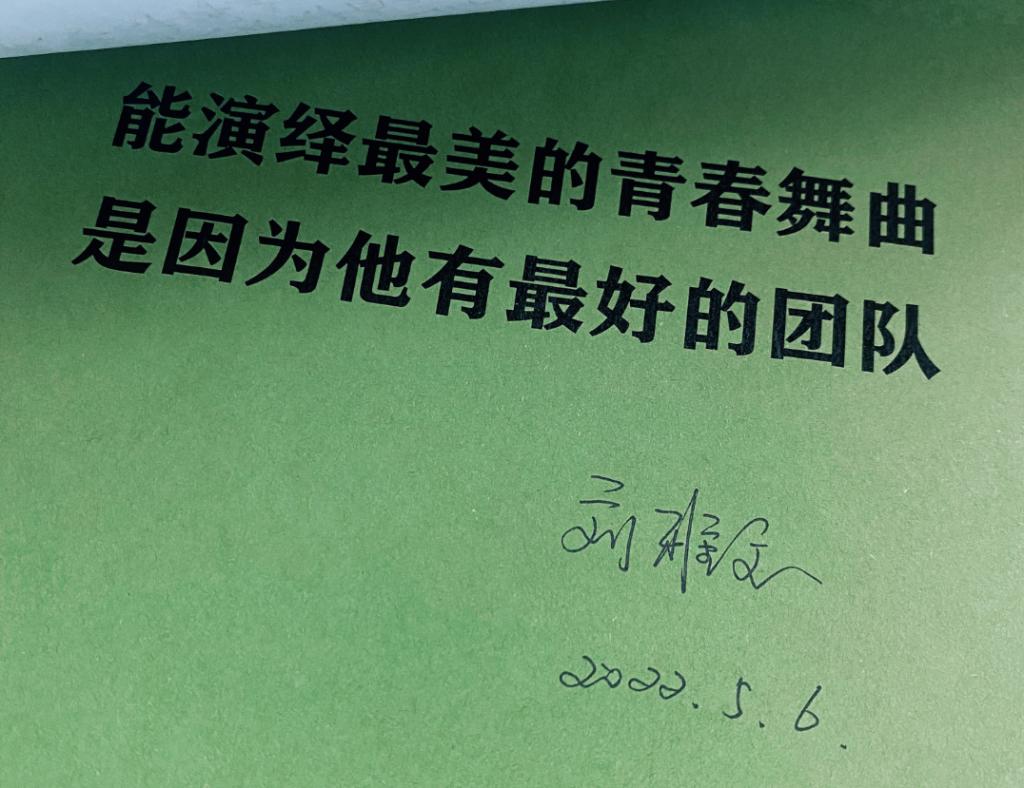 能演绎最美的青春舞曲
是因为他有最好的团队
刘雅文
2022.5.6.